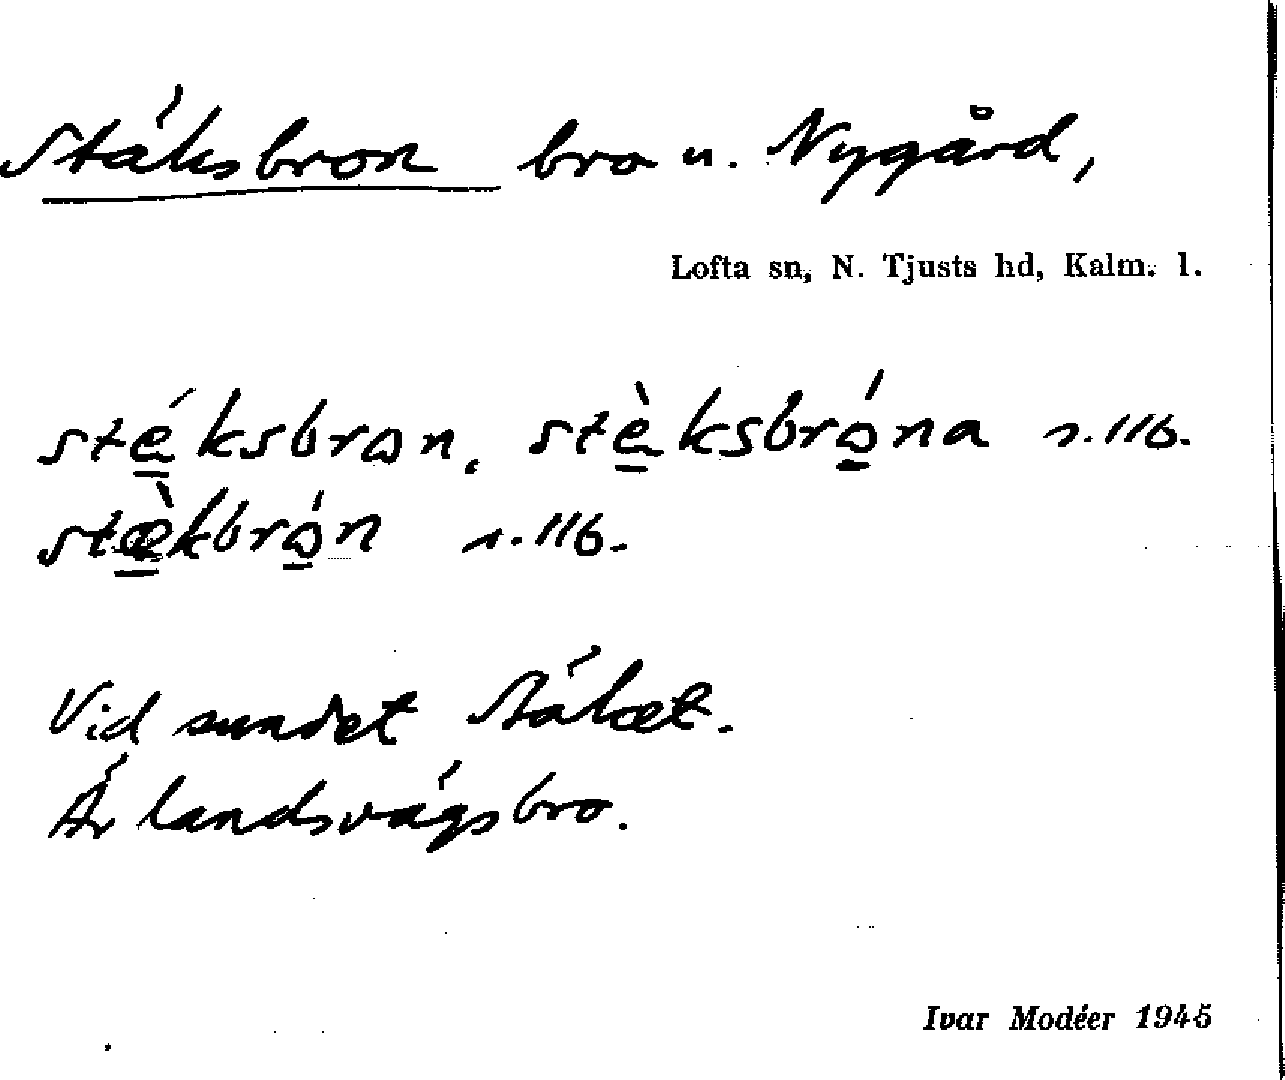 Stäksbron bro u. Nygård,
Lofta sn, N. Tjusts hd, Kalm. l.
stéksbron, stèksbróna s.116.
stæ̀kbrón s.116.
Vid sundet Stäket.
Är landsvägsbro.
Ivar Modéer 1945